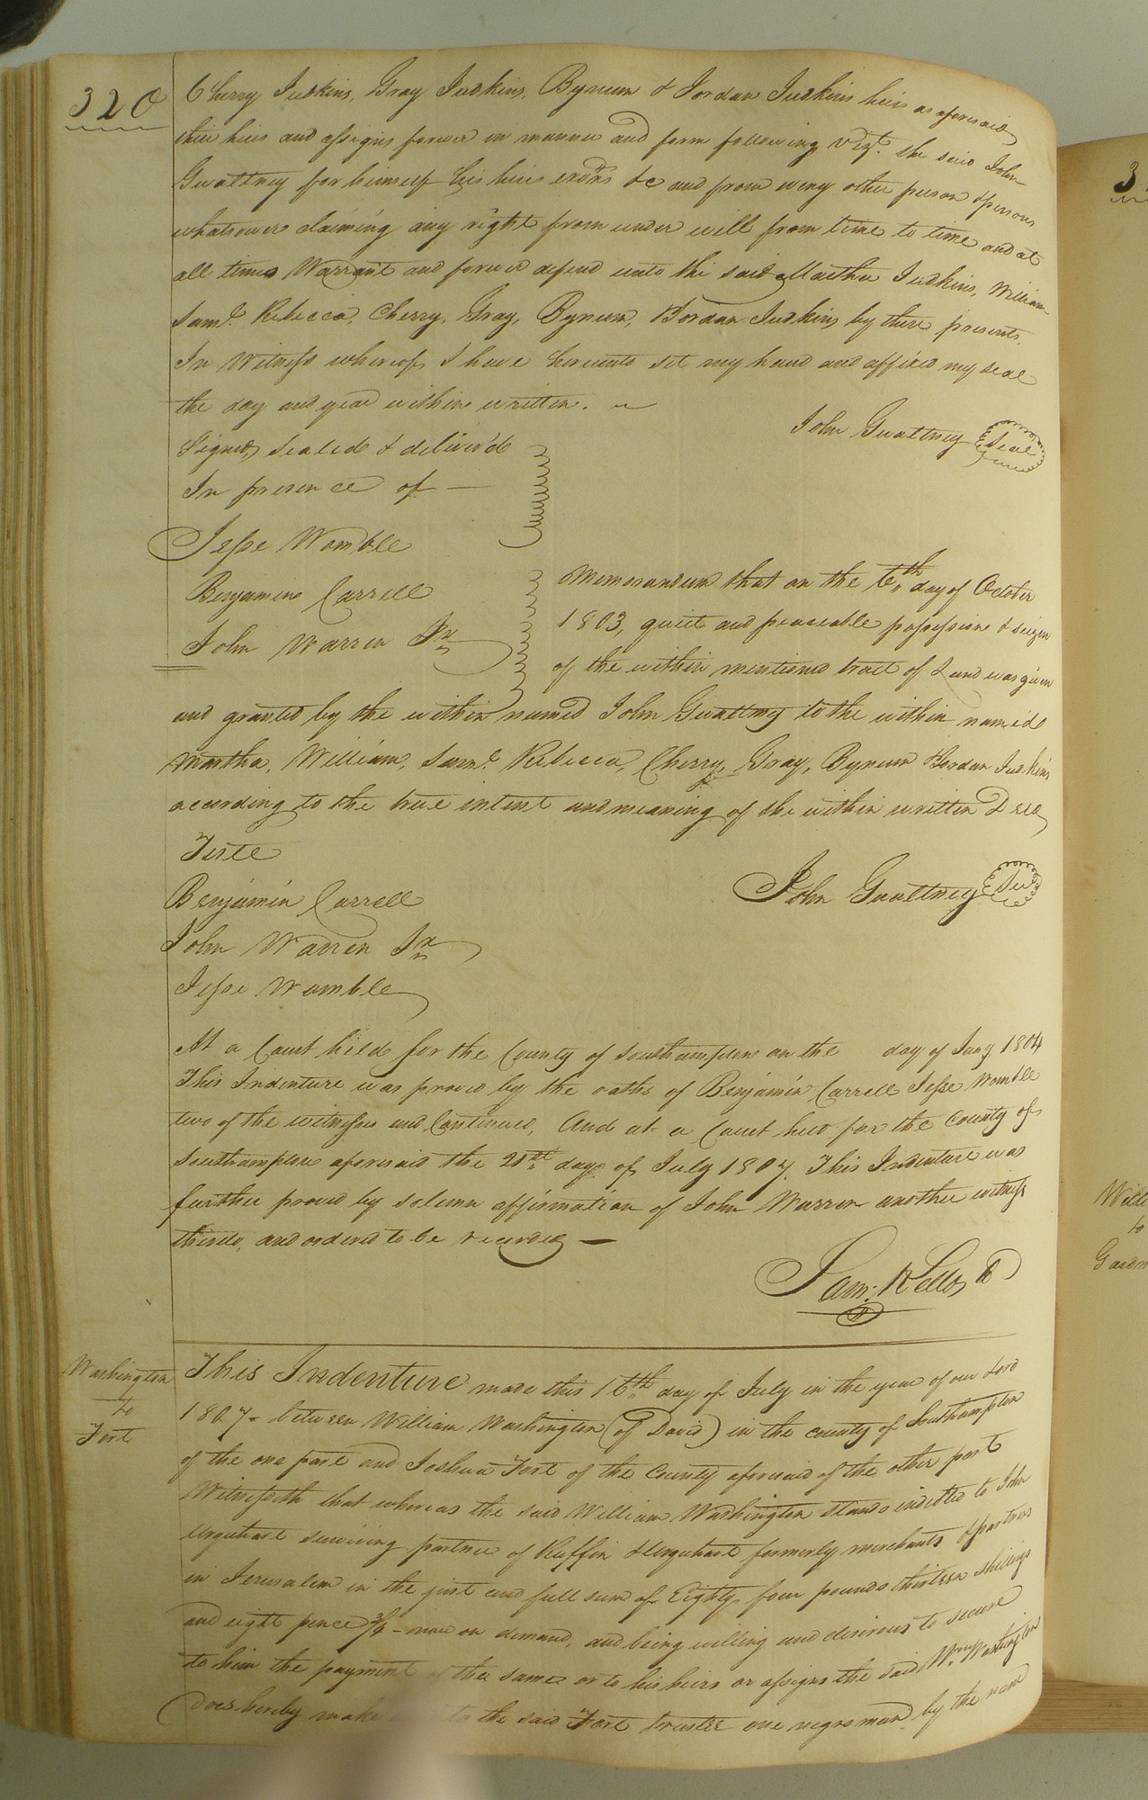 320
Cherry Judkins, Gray Judkins, Bynum & Jordan Judkins heirs as aforesaid
their heirs and assigns forever in manner and form following Vizt. the said John
Gwaltney for himself his heirs exors &c and from every other person & persons
whatsoever claiming any right from under will from time to time and at
all times Warrant and forever defend unto the said Martha Judkins, William
Saml. Rebecca, Cherry, Gray, Bynum, & Jordan Judkins by these presents.
In Witness whereof I have hereunto set my hand and affixed my seal
the day and year within written.
John Gwaltney Seal
Signed, Sealed & deliver'd
In presence of
Jesse Womble
Benjamin Carrell
John Warren Jr
Memorandum that on the 6th day of October
1803, quiet and peaceable possession & seizen
of the within mentioned tract of Land was given
and granted by the within named John Gwaltney to the within named
Martha, William, Saml. Rebecca, Cherry, Gray, Bynum & Jordan Judkins
according to the true intent and meaning of the within written Deed
Teste
Benjamin Carrell
John Warren Jr
Jesse Womble
John Gwaltney Seal
At a Court held for the County of Southampton on the day of Jany 1804
This Indenture was proved by the oaths of Benjamin Carrell Jesse Womble
two of the witnesses and Continued, And at a Court held for the County of
Southampton aforesaid the 20th day of July 1807. This Indenture was
further proved by solemn affirmation of John Warren another witness
thereto, and ordered to be recorded
Sam: Kello
Washington
to
Fort
This Indenture made this 16th day of July in the year of our Lord
1807 - between William Washington (of David) in the county of Southampton
of the one part and Joshua Fort of the County aforesaid of the other part
Witnesseth that whereas the said William Washington stands indebted to John
Urquhart surviving partner of Ruffin & Urquhart formerly merchants & partners
in Jerusalem in the just and full sum of Eighty four pounds thirteen shillings
and eight pence due on demand, and being willing and desirous to secure
to him the payment of the same or to his heirs or assigns the said Wm Washington
Does hereby make to the said Fort trustee one negro man by the name
3
Will
to
Garden